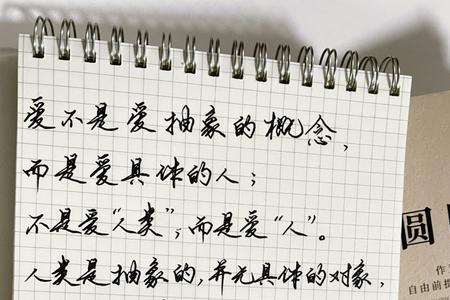 爱不是爱抽象的概念，
而是爱具体的人；
不是爱“人类”，而是爱“人”。
人类是抽象的，并无具体的对象，
圆
作
自由前提